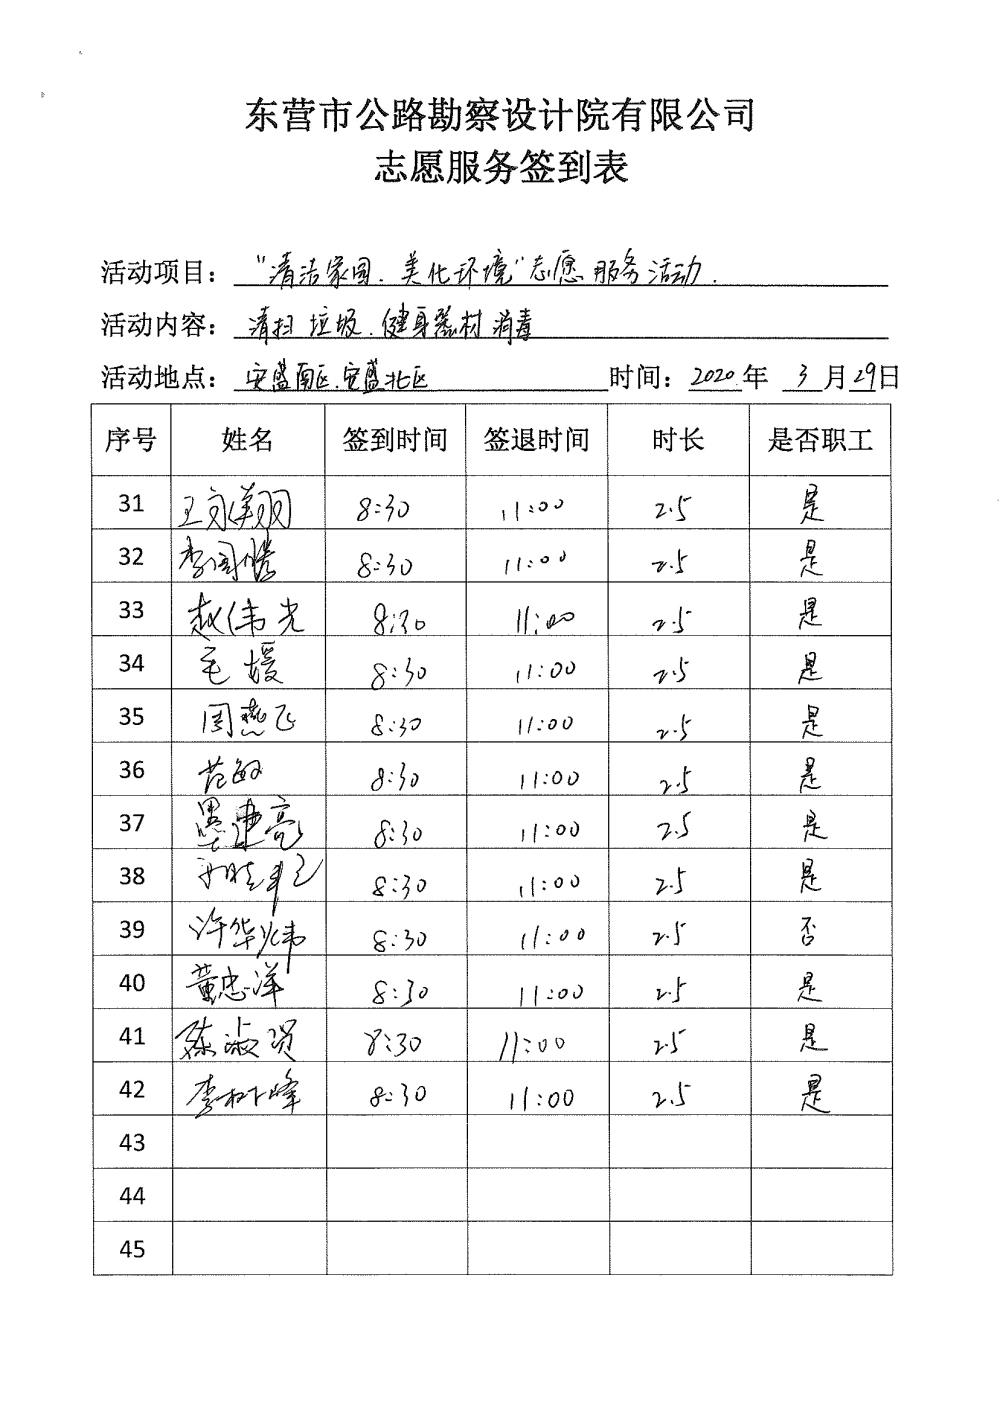 东营市公路勘察设计院有限公司
志愿服务签到表
活动项目： “清洁家园、美化环境”志愿服务活动.
活动内容： 清扫垃圾、健身器材消毒
活动地点： 安盛南区、安盛北区 时间： 2020 年 3 月 29 日
序号 姓名 签到时间 签退时间 时长 是否职工
31 王 翔 8:30 11:00 2.5 是
32 李国 8:30 11:00 2.5 是
33 赵伟光 8:30 11:00 2.5 是
34 毛媛 8:30 11:00 2.5 是
35 周燕飞 8:30 11:00 2.5 是
36 范敏 8:30 11:00 2.5 是
37 墨建亮 8:30 11:00 2.5 是
38 8:30 11:00 2.5 是
39 许华炜 8:30 11:00 2.5 否
40 董忠洋 8:30 11:00 2.5 是
41 陈淑贤 8:30 11:00 2.5 是
42 李树峰 8:30 11:00 2.5 是
43
44
45